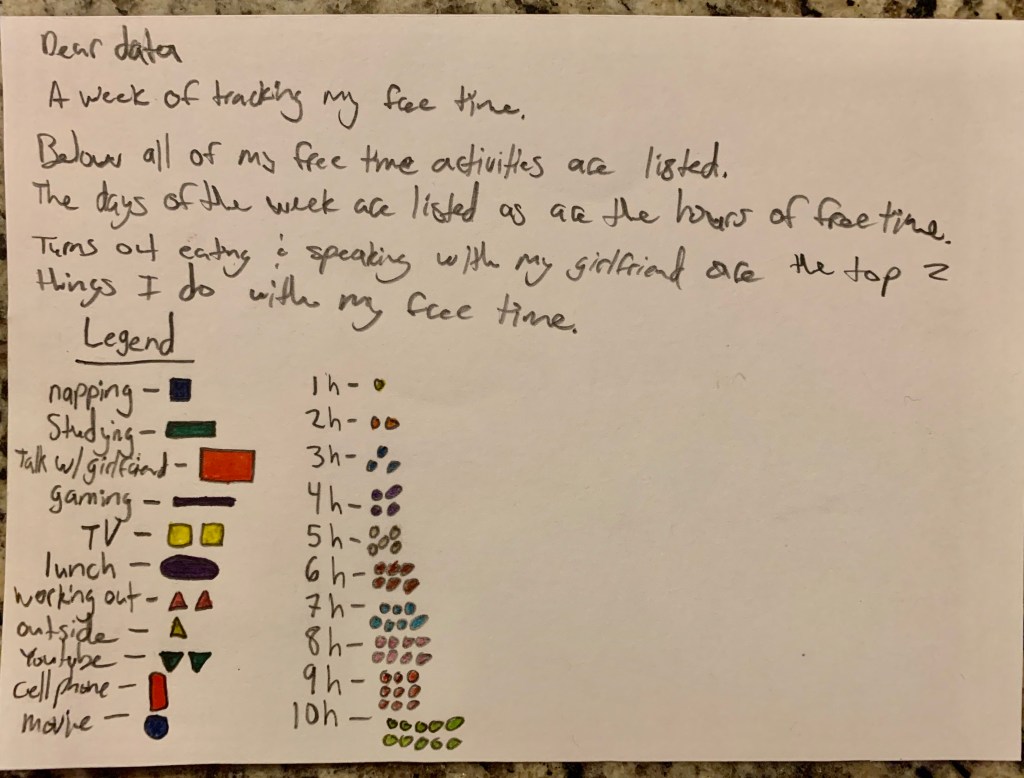 Dear data
A week of tracking my free time.
Below all of my free time activities are listed.
The days of the week are listed as are the hours of free time.
Turns out eating & speaking with my girlfriend are the top 2
things I do with my free time.
Legend
napping -
Studying -
Talk w/ girlfriend -
gaming -
TV -
lunch -
working out -
outside -
Youtube -
cell phone -
movie -
1h -
2h -
3h -
4h -
5h -
6h -
7h -
8h -
9h -
10h -